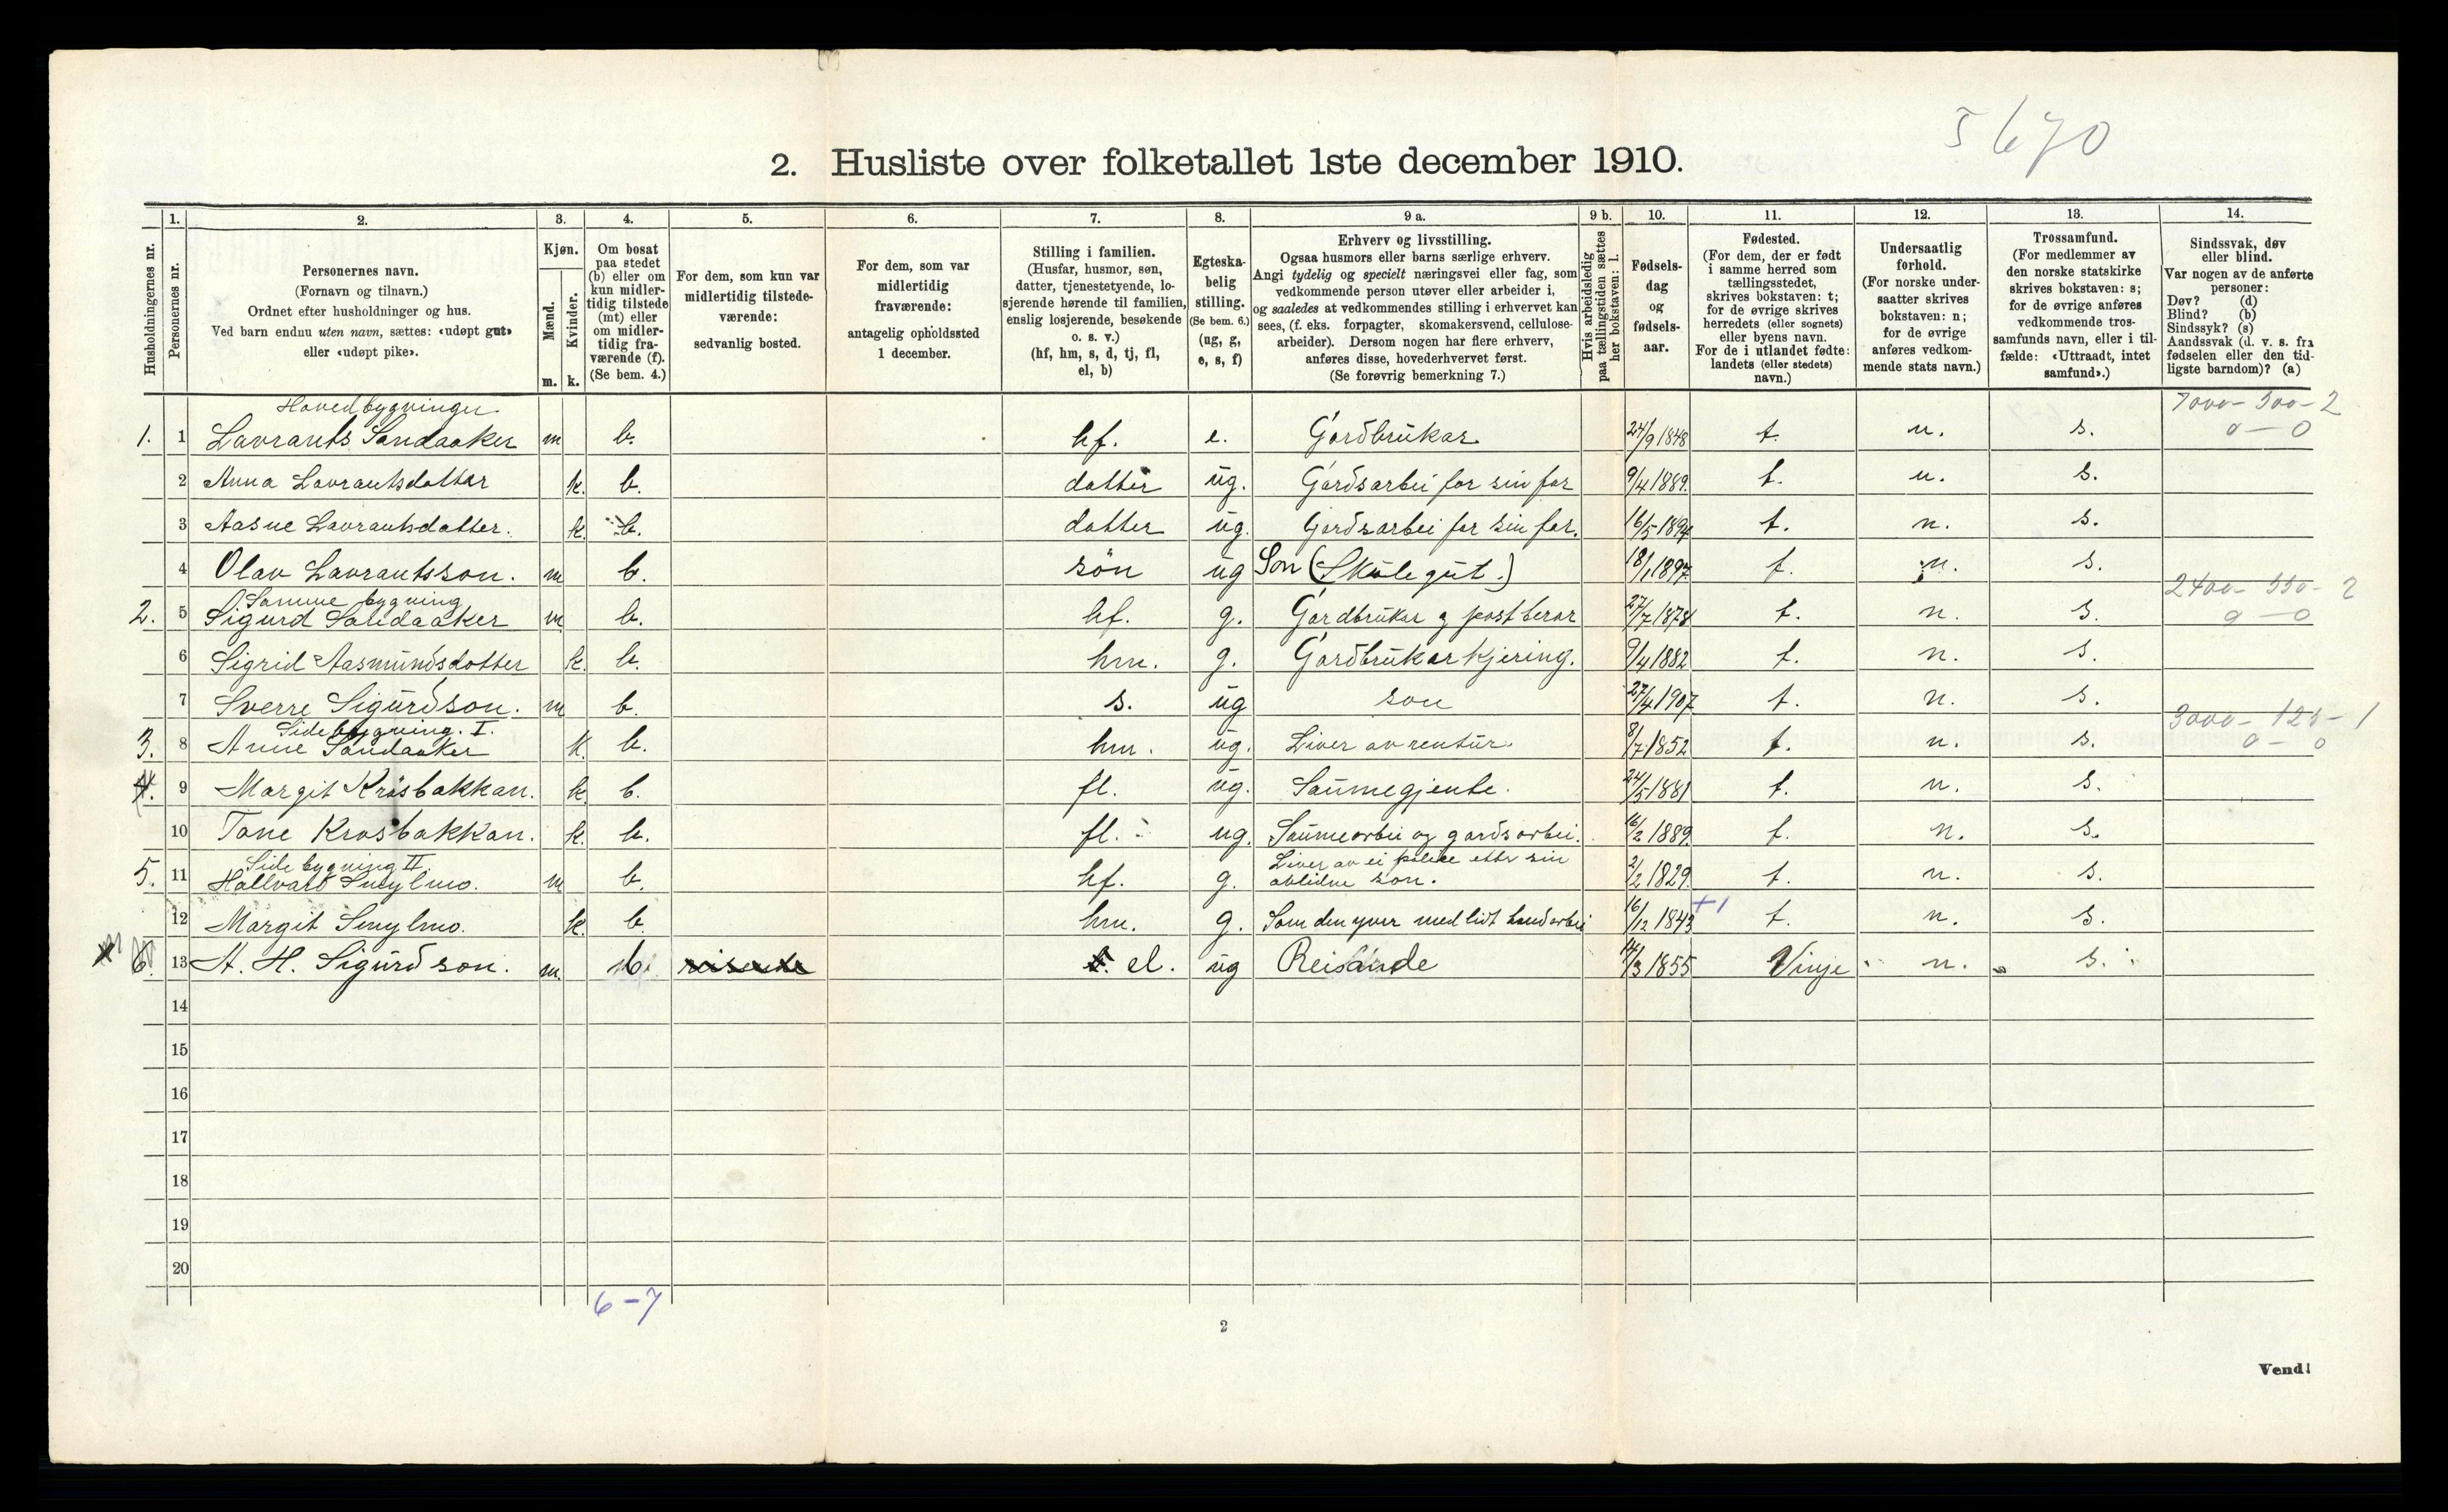 5670
2. Husliste over folketallet 1ste december 1910.
1. 2. 3. 4. 5. 6. 7. 8. 9 a. 9 b. 10. 11. 12. 13. 14.
Husholdningernes nr.
Personernes nr.
Personernes navn.
(Fornavn og tilnavn.)
Ordnet efter husholdninger og hus.
Ved barn endnu uten navn, sættes: «udøpt gut»
eller «udøpt pike».
Kjøn.
Mænd.
Kvinder.
m. k.
Om bosat
paa stedet
(b) eller om
kun midler-
tidig tilstede
(mt) eller
om midler-
tidig fra-
værende (f).
(Se bem. 4.)
For dem, som kun var
midlertidig tilstede-
værende:
sedvanlig bosted.
For dem, som var
midlertidig
fraværende:
antagelig opholdssted
1 december.
Stilling i familien.
(Husfar, husmor, søn,
datter, tjenestetyende, lo-
sjerende hørende til familien,
enslig losjerende, besøkende
o. s. v.)
(hf, hm, s, d, tj, fl,
el, b)
Egteska-
belig
stilling.
(Se bem. 6.)
(ug, g,
e, s, f)
Erhverv og livsstilling.
Ogsaa husmors eller barns særlige erhverv.
Angi tydelig og specielt næringsvei eller fag, som
vedkommende person utøver eller arbeider i,
og saaledes at vedkommendes stilling i erhvervet kan
sees, (f. eks. forpagter, skomakersvend, cellulose-
arbeider). Dersom nogen har flere erhverv,
anføres disse, hovederhvervet først.
(Se forøvrig bemerkning 7.)
Hvis arbeidsledig
paa tællingstiden sættes
her bokstaven: l.
Fødsels-
dag
og
fødsels-
aar.
Fødested.
(For dem, der er født
i samme herred som
tællingsstedet,
skrives bokstaven: t;
for de øvrige skrives
herredets (eller sognets)
eller byens navn.
For de i utlandet fødte:
landets (eller stedets)
navn.)
Undersaatlig
forhold.
(For norske under-
saatter skrives
bokstaven: n;
for de øvrige
anføres vedkom-
mende stats navn.)
Trossamfund.
(For medlemmer av
den norske statskirke
skrives bokstaven: s;
for de øvrige anføres
vedkommende tros-
samfunds navn, eller i til-
fælde: «Uttraadt, intet
samfund».)
Sindssvak, døv
eller blind.
Var nogen av de anførte
personer:
Døv? (d)
Blind? (b)
Sindssyk? (s)
Aandssvak (d. v. s. fra
fødselen eller den tid-
ligste barndom)? (a)
Hovedbygningen 7000-500-2
1. 1 Lavrants Sandaaker m b. hf. e. Gardbrukar. 24/9 1848 t. n. s. 0-0
2 Anna Lavrantsdotter k. b. dotter ug. Gardsarbei for sin far 9/4 1889. t. n. s.
3 Aasne Lavrantsdatter. k. b. datter ug. Gardsarbei for sin far. 16/5 1894 t. n. s.
4 Olav Lavrantsson. m b. søn ug Son (Skulegut.) 18/1 1897 t. n. s.
Samme bygning 2400-550-2
2. 5 Sigurd Sandaaker m b. hf. g. Gardbrukar og postberar 27/7 1878 t. n. s. 0-0
6 Sigrid Aasmundsdotter k. b. hm. g. Gardbrukarkjering. 9/4 1882 t. n. s.
7 Sverre Sigurdson. m b. s. ug son 27/4 1907 t. n. s.
Sidebygning. I. 3000-125-1
3. 8 Anne Sandaaker k. b. hm. ug. Liver av rentur. 8/7 1852 t. n. s. 0-0
4. 9 Margit Krosbakkan. k. b. fl. ug. Saumegjente. 24/5 1881 t. n. s.
10 Tone Krosbakkan. k. b. fl. ug. Saumearbei og gardsarbei. 16/2 1889. t. n. s.
Side bygning II. Liver av ei police etter sin
5. 11 Hallvard Smylmo. m b. hf. g. avlidne son. 2/2 1829. t. n. s.
12 Margit Smylmo. k. b. hm. g. Som den yver med lidt handarbei 16/12 1843 +1 t. n. s.
6. 13 A. H. Sigurdson. m. b. el. ug Reisande 14/3 1855 Vinje n. s.
14
15
16
17
18
19
20
6-7
2
Vend!